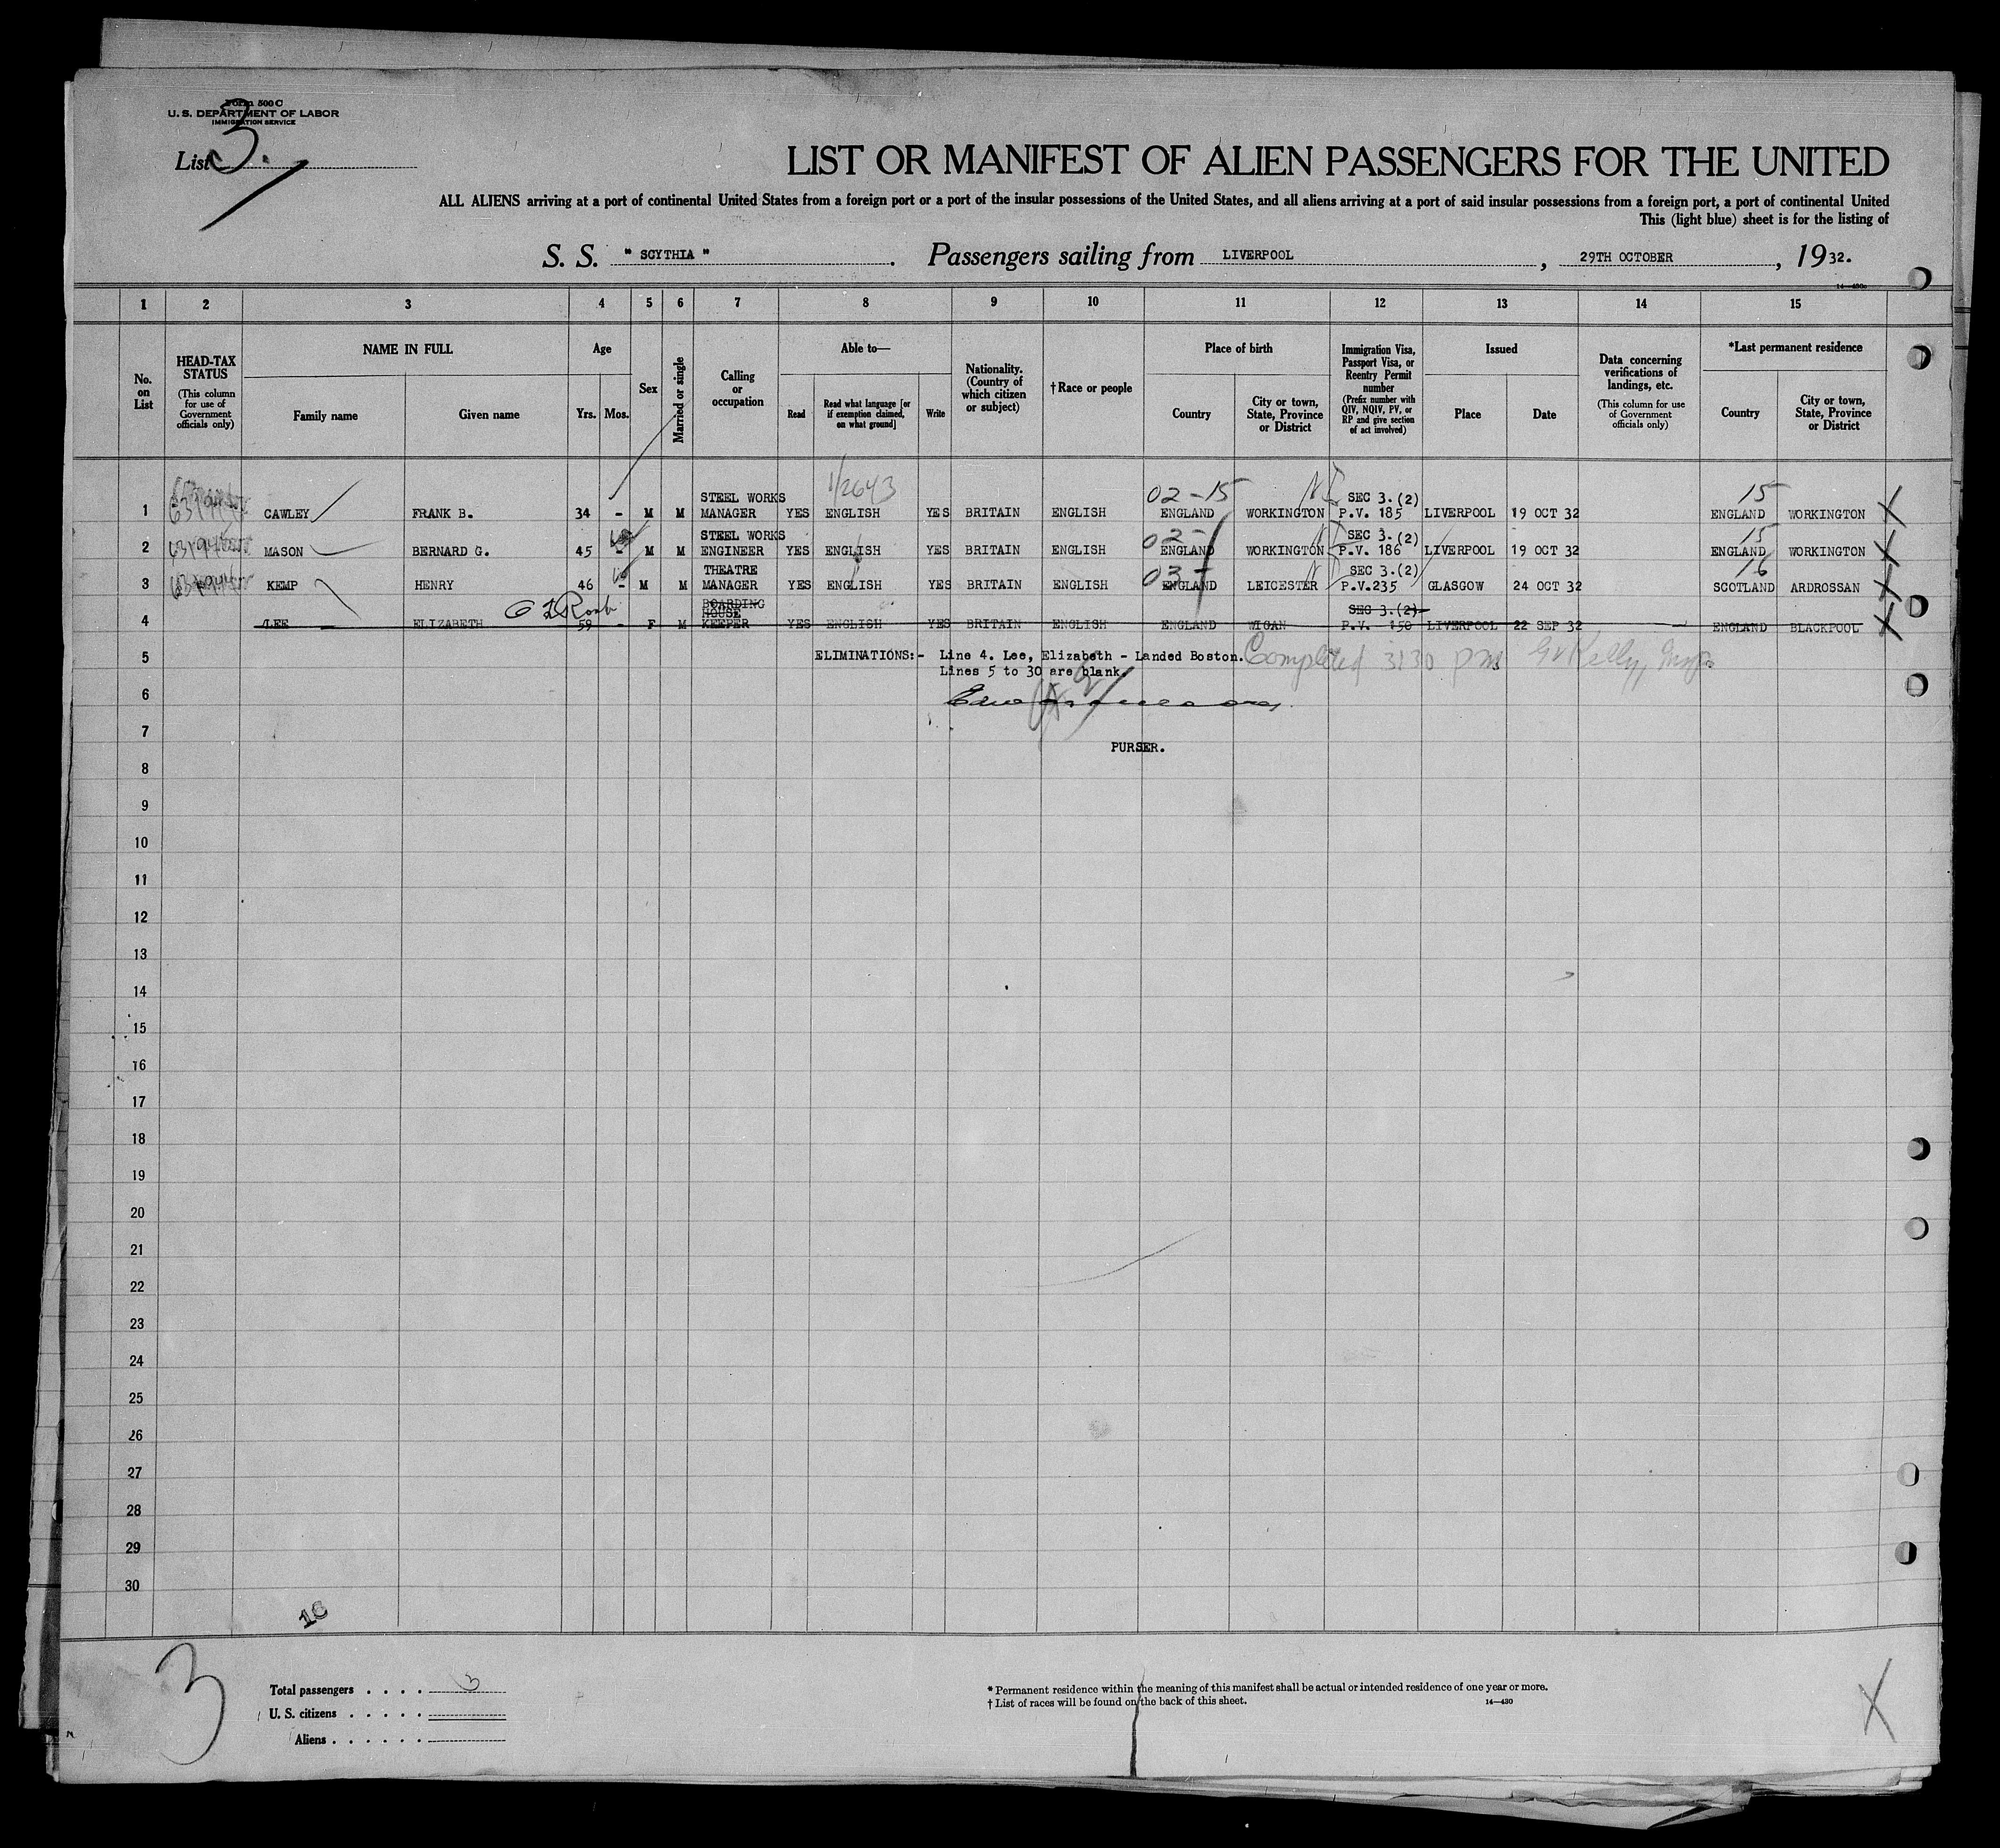 Form 500 C
U. S. DEPARTMENT OF LABOR
IMMIGRATION SERVICE
List 3.
LIST OR MANIFEST OF ALIEN PASSENGERS FOR THE UNITED
ALL ALIENS arriving at a port of continental United States from a foreign port or a port of the insular possessions of the United States, and all aliens arriving at a port of said insular possessions from a foreign port, a port of continental United
This (light blue) sheet is for the listing of
S. S. "SCYTHIA". Passengers sailing from LIVERPOOL, 29TH OCTOBER, 1932.
1 2 3 4 5 6 7 8 9 10 11 12 13 14 15
No. on List
HEAD-TAX STATUS (This column for use of Government officials only)
NAME IN FULL Family name Given name
Age Yrs. Mos.
Sex
Married or single
Calling or occupation
Able to— Read Read what language [or if exemption claimed, on what ground] Write
Nationality. (Country of which citizen or subject)
†Race or people
Place of birth Country City or town, State, Province or District
Immigration Visa, Passport Visa, or Reentry Permit number (Prefix number with QIV, NQIV, PV, or RP and give section of act involved)
Issued Place Date
Data concerning verifications of landings, etc. (This column for use of Government officials only)
*Last permanent residence Country City or town, State, Province or District
1/2643 02-15 15
1 CAWLEY FRANK B. 34 - M M STEEL WORKS MANAGER YES ENGLISH YES BRITAIN ENGLISH ENGLAND WORKINGTON SEC 3.(2) P.V. 185 LIVERPOOL 19 OCT 32 ENGLAND WORKINGTON X
02- 15
2 MASON BERNARD G. 45 - M M STEEL WORKS ENGINEER YES ENGLISH YES BRITAIN ENGLISH ENGLAND WORKINGTON SEC 3.(2) P.V. 186 LIVERPOOL 19 OCT 32 ENGLAND WORKINGTON X
03- 16
3 KEMP HENRY 46 - M M THEATRE MANAGER YES ENGLISH YES BRITAIN ENGLISH ENGLAND LEICESTER SEC 3.(2) P.V.235 GLASGOW 24 OCT 32 SCOTLAND ARDROSSAN X
4 LEE ELIZABETH 59 - F M BOARDING HOUSE KEEPER YES ENGLISH YES BRITAIN ENGLISH ENGLAND WIGAN SEC 3.(2) P.V. 150 LIVERPOOL 22 SEP 32 ENGLAND BLACKPOOL X
5 ELIMINATIONS:- Line 4. Lee, Elizabeth - Landed Boston. Completed 3130 PM Kelly,
Lines 5 to 30 are blank.
6
7 PURSER.
8
9
10
11
12
13
14
15
16
17
18
19
20
21
22
23
24
25
26
27
28
29
30
16
3
Total passengers . . . . 3
U. S. citizens . . . . .
Aliens . . . . . .
* Permanent residence within the meaning of this manifest shall be actual or intended residence of one year or more.
† List of races will be found on the back of this sheet. 14—430
X